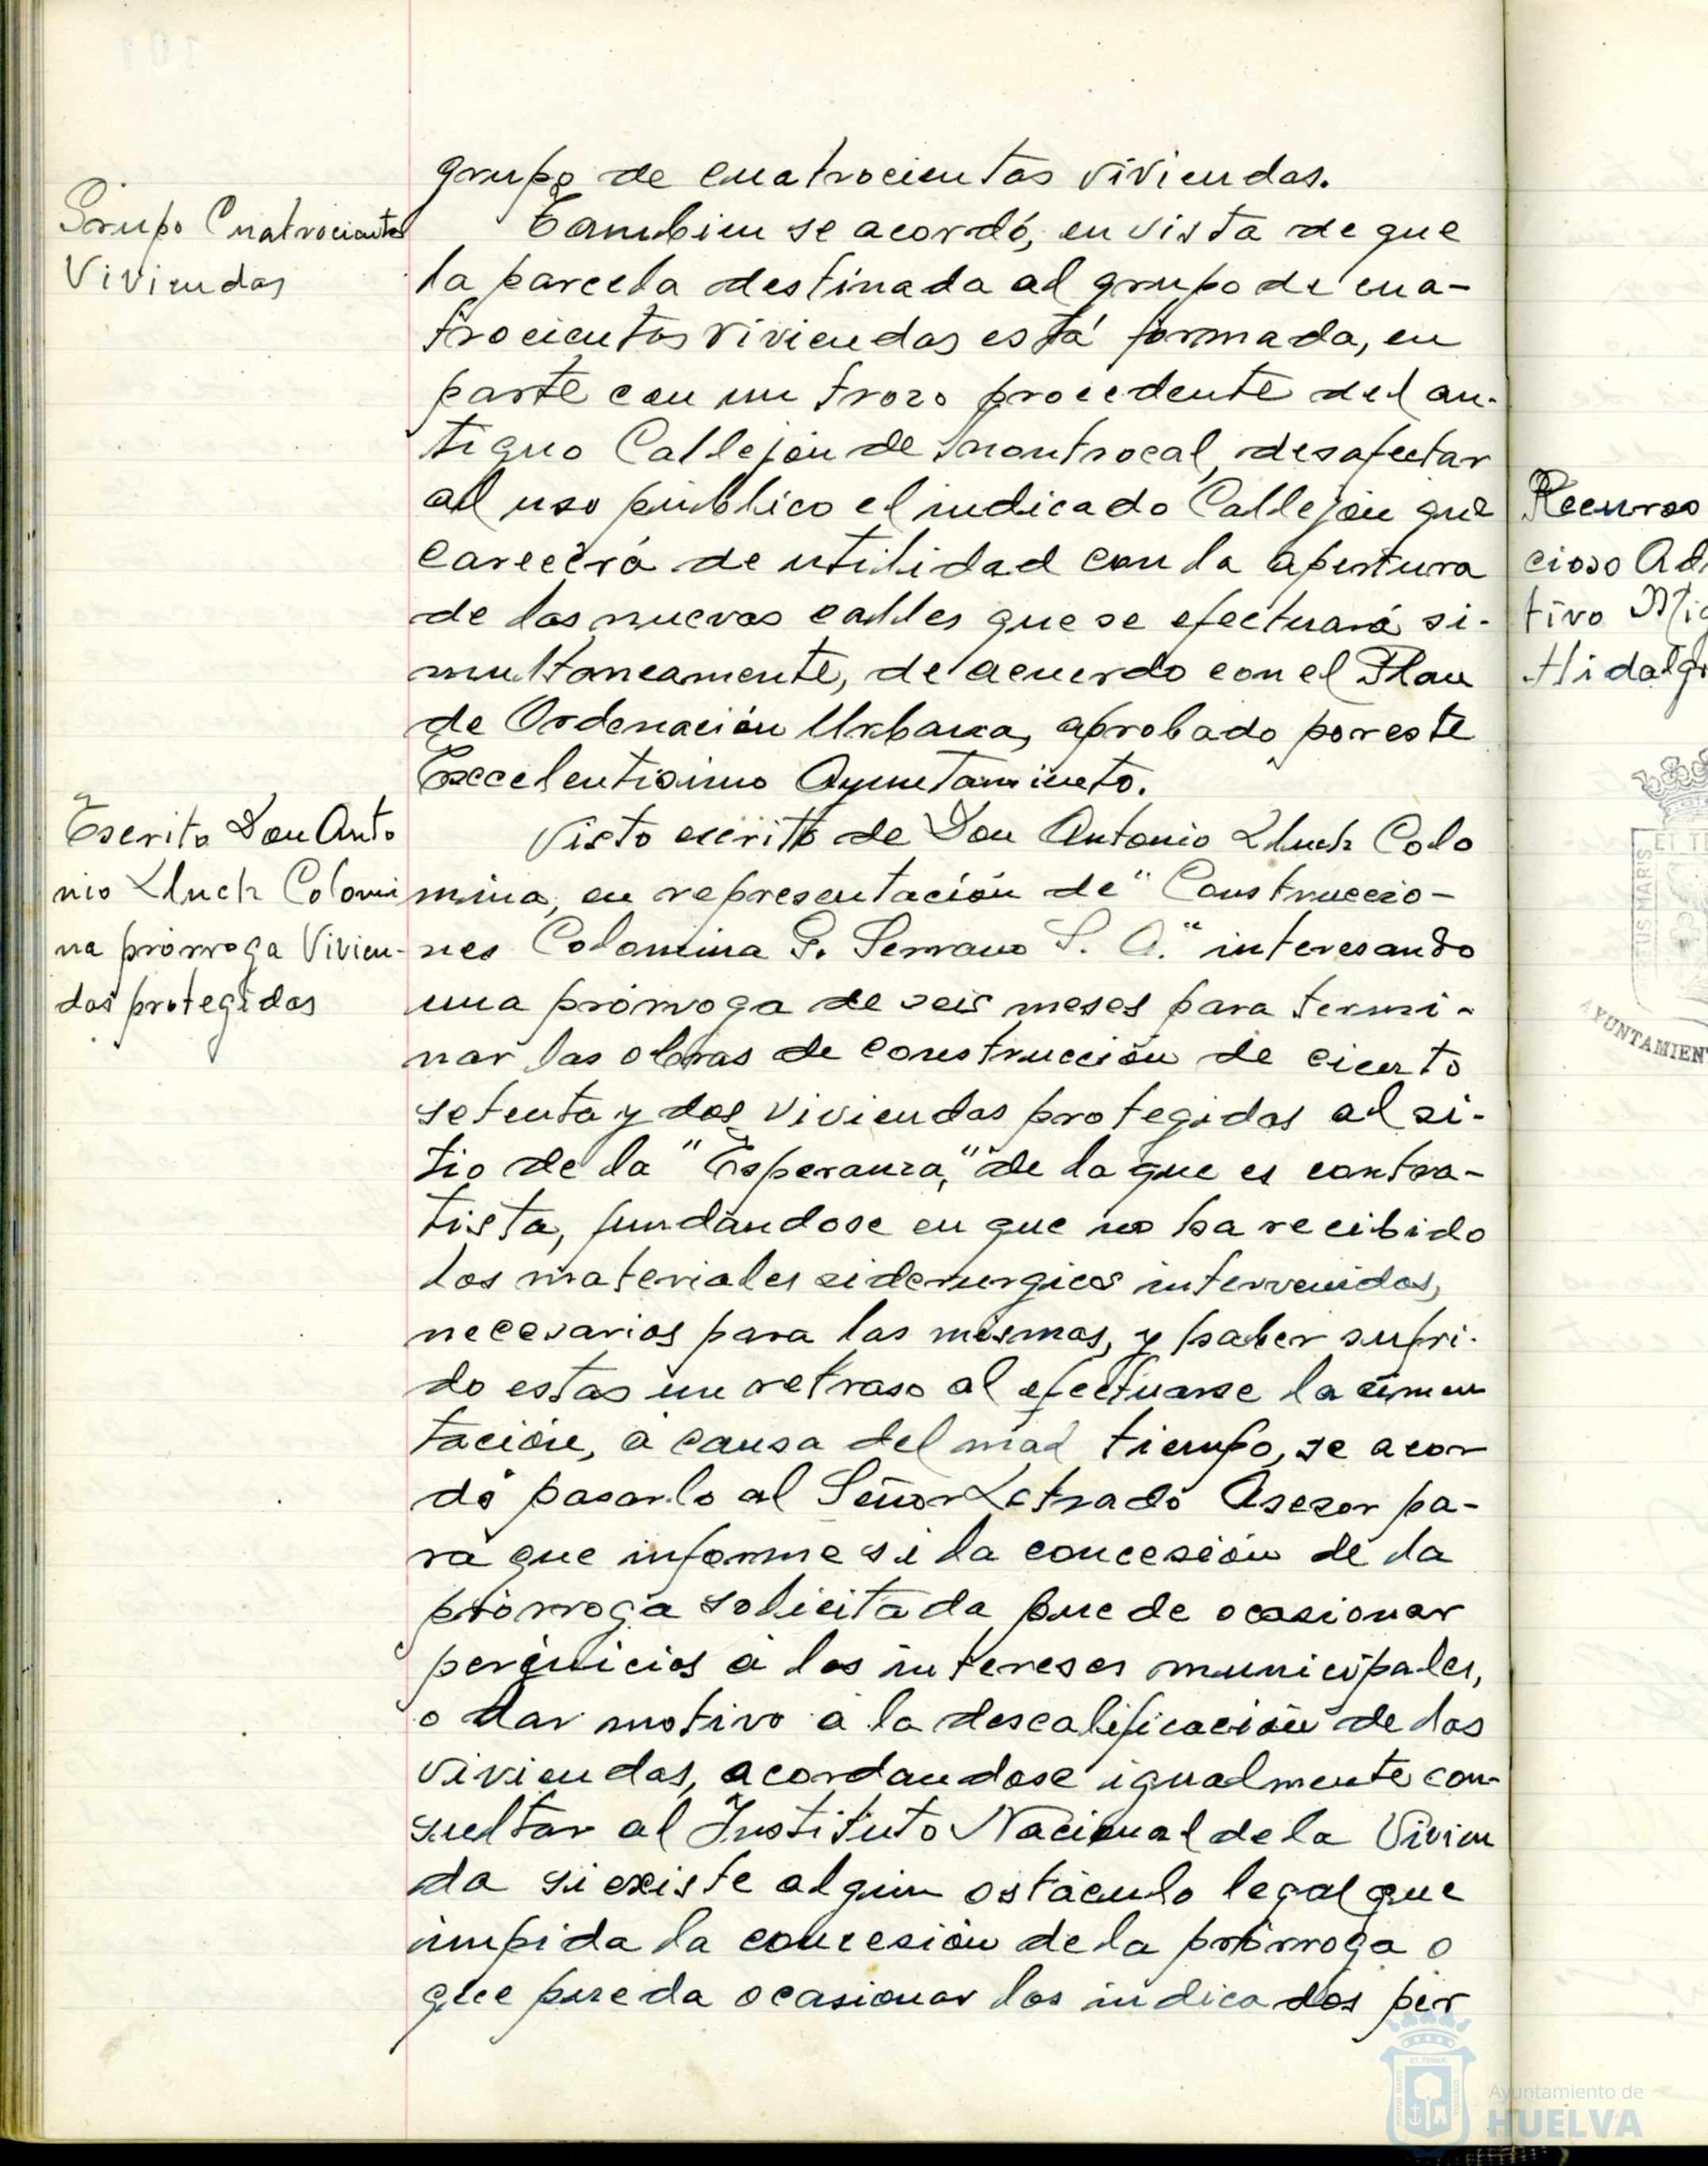 grupo de cuatrocientas viviendas.
Grupo Cuatrocientas
Viviendas
Tambien se acordó, en vista de que
la parcela destinada al grupo de cua-
trocientas viviendas está formada, en
parte con un trozo procedente del an-
tiguo Callejón de Montrocal, desafectar
al uso público el indicado Callejón que
carecerá de utilidad con la apertura
de las nuevas calles que se efectuará si-
multaneamente, de acuerdo con el Plan
de Ordenación Urbana, aprobado por este
Excelentisimo Ayuntamiento.
Escrito Don Anto
nio Lluch Colomi
na prórroga Vivien-
das protegidas
Visto escrito de Don Antonio Lluch Colo
mina, en representación de "Construccio-
nes Colomina G. Serrano S. A." interesando
una prórroga de seis meses para termi-
nar las obras de construcción de ciento
setenta y dos viviendas protegidas al si-
tio de la "Esperanza," de la que es contra-
tista, fundándose en que no ha recibido
los materiales siderurgicos intervenidos,
necesarios para las mismas, y haber sufri-
do estas un retraso al efectuarse la cimen
tación, á causa del mal tiempo, se acor
dó pasarlo al Señor Letrado Asesor pa-
ra que informe si la concesión de la
prórroga solicitada puede ocasionar
perjuicios á los intereses municipales,
o dar motivo á la descalificación de las
viviendas, acordandose igualmente con-
sultar al Instituto Nacional de la Vivien
da si existe algún ostáculo legal que
impida la concesión de la prórroga o
que pueda ocasionar los indicados per
Recurso
cioso Ad
tivo Mig
Hidalgo
ET TE
TUS MARIS
AYUNTAMIEN
Ayuntamiento de
HUELVA